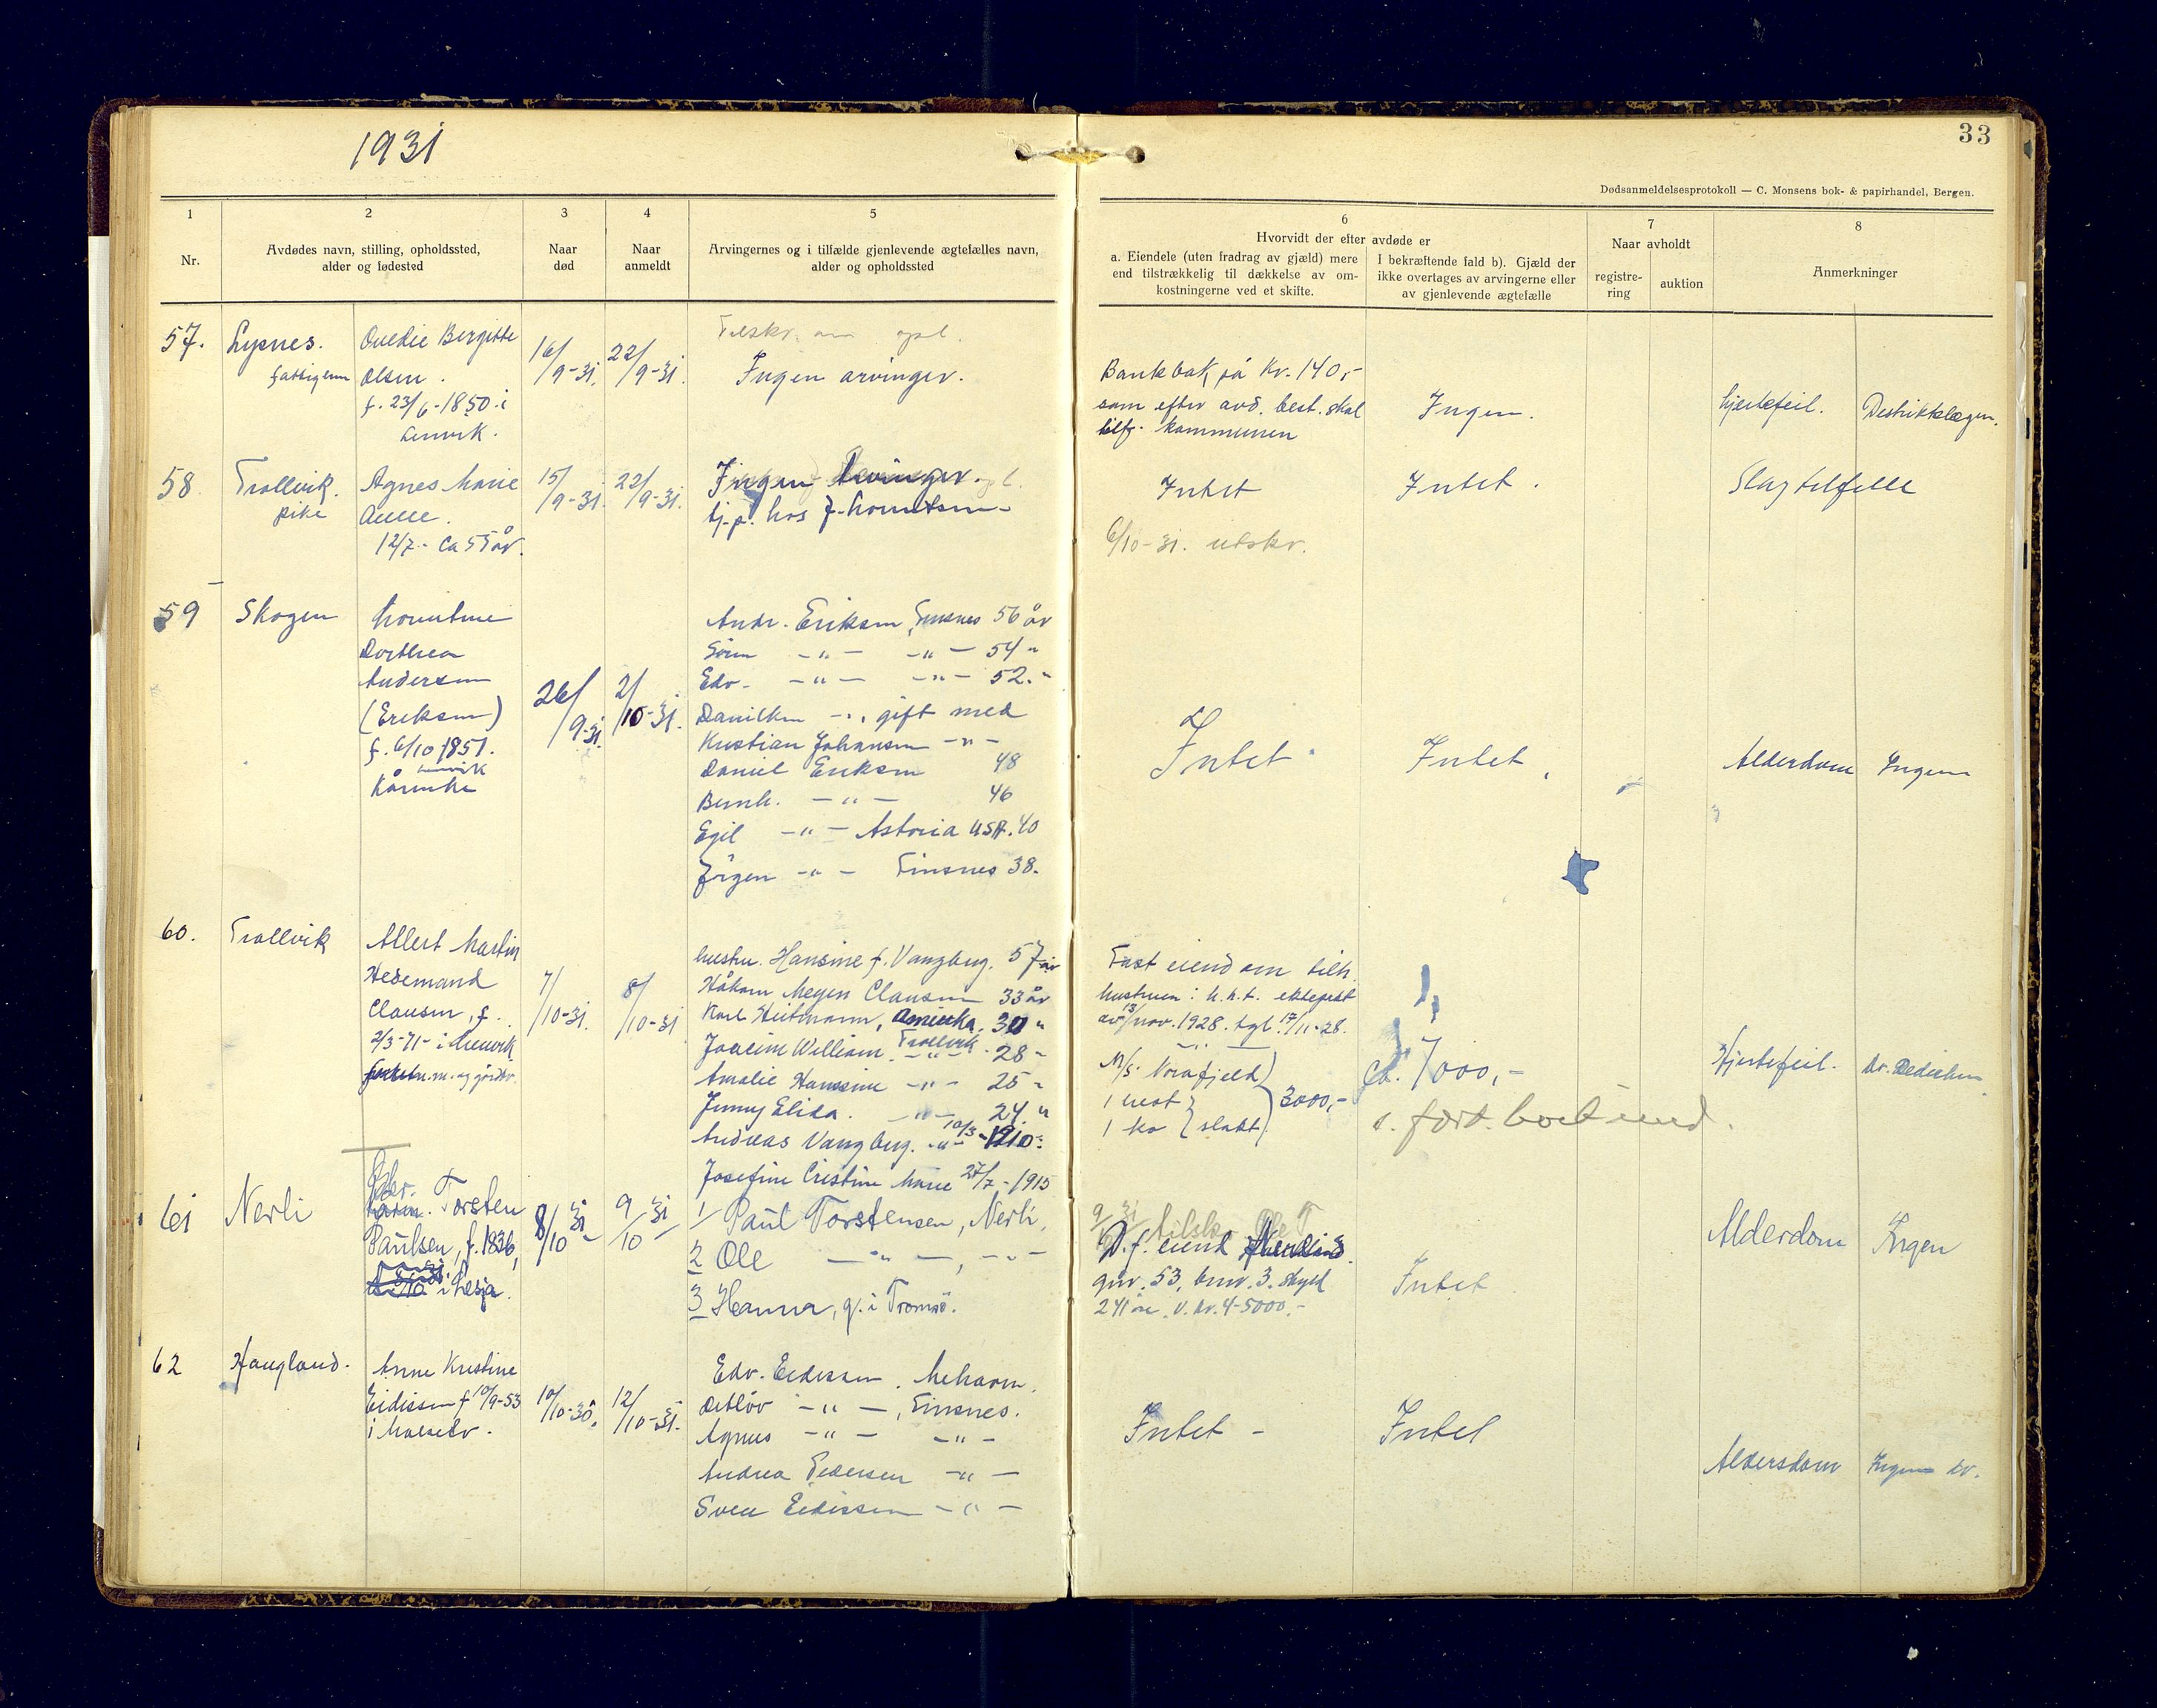 1931
33
Dødsanmeldelsesprotokoll — C. Monsens bok- & papirhandel, Bergen.
1
2
3
4
5
6
7
8
Nr.
Avdødes navn, stilling, opholdssted,
alder og fødested
Naar
død
Naar
anmeldt
Arvingernes og i tilfælde gjenlevende ægtefælles navn,
alder og opholdssted
Hvorvidt der efter avdøde er
a. Eiendele (uten fradrag av gjæld) mere
end tilstrækkelig til dækkelse av om-
kostningerne ved et skifte.
I bekræftende fald b). Gjæld der
ikke overtages av arvingerne eller
av gjenlevende ægtefælle
Naar avholdt
registre-
ring
auktion
Anmerkninger
57.
Lysnes.
Ovedie Bergitte
Olsen.
f. 23/6-1850 i
Lenvik.
16/9-31.
22/9-31.
Tilskr. om opl.
Ingen arvinger.
Bankbok på Kr. 140,-
som efter avd. best. skal
tilf. kommunen
Ingen.
hjertefeil.
Distriktslægen.
58.
Trollvik.
pike
Agnes Marie
12/7 - ca 55 år.
15/9-31.
22/9-31.
Ingen Arvinger.
tj.p. hos
Intet
Intet.
Slagtilfelle
6/10-31. utskr.
59
Skogen
Dorthea
Andersen
(Eriksen)
f. 6/10 1851.
26/9-31.
2/10-31.
Andr. Eriksen, Finsnes 56 år
Sören -"- -"- 54 "
Edv. -"- -"- 52.-
-"- gift med
Kristian Johansen -"-
Daniel Eriksen 48
Bernh. -"- 46
Egil -"- Astoria USA. 40
Jörgen -"- Finsnes 38.
Intet
Intet
Alderdom
Ingen
60.
Trollvik
Allert Martin
Hedemand
Clausen, f.
2/3-71- i Lenvik
7/10-31.
8/10-31
hustru. Hansine f. Vangberg. 57 år
Håkon Meyer Clausen 33 år
Karl Heitmann, Amerika. 30 "
Joacim William. Trollvik -"- 28 -
Amalie Hanssine -"- 25 -
Jenny Elida. -"- 24. "
Andreas Vangberg. -"- 10/3-1910.
Josefine Cristine Marie 27/7-1915
Fast eiendom tilh.
hustruen i h.h.t. ektepakt
av 13/nov. 1928. tgl. 17/11-28.
M/S. Norafjeld
1 hest
1 ko
3000,-
ca. 7000,-
Hjertefeil.
61
Nerli
Torsten
Paulsen, f. 1836,
i Lesja.
8/10 31
9/10 31
1 Paul Torstensen, Nerli,
2 Ole -"-, -"-
3 Hanna, g. i Tromsö.
D.f. eiend
gnr. 53, bnr. 3. skyld
241 øre. V. kr. 4-5000.-
Intet
Alderdom
Ingen
62
Haugland.
Anne Kristine
Eidissen f 10/9-53
i Målselv.
10/10-30.
12/10-31.
Edv. Eidissen. Mehavn.
Detlöv -"-, Finsnes.
Agnes -"- -"-
Andrea Pedersen -"-
Sven Eidissen -"-
Intet -
Intet
Aldersdom
Ingen dr.